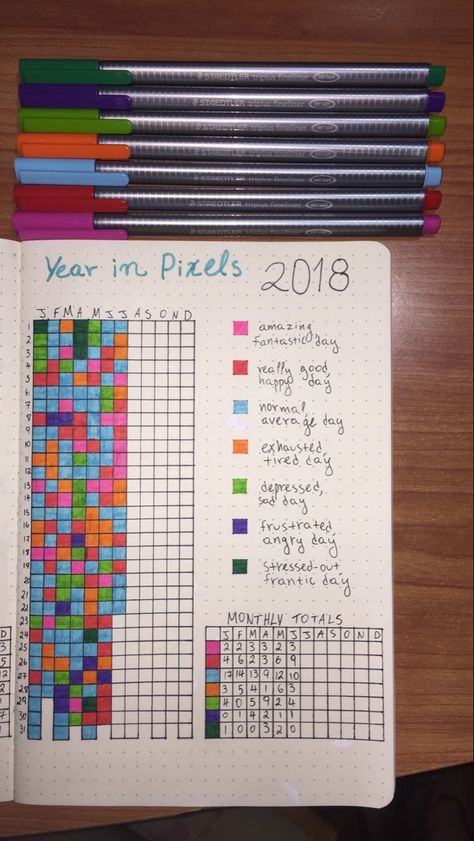 STAEDTLER triplus fineliner
STAEDTLER triplus fineliner
STAEDTLER triplus fineliner
STAEDTLER triplus fineliner
STAEDTLER triplus fineliner
STAEDTLER triplus fineliner
STAEDTLER triplus fineliner
Year in Pixels 2018
J F M A M J J A S O N D
1
2
3
4
5
6
7
8
9
10
11
12
13
14
15
16
17
18
19
20
21
22
23
24
25
26
27
28
29
30
31
amazing,
fantastic day
really good,
happy day
normal
average day
exhausted,
tired day
depressed,
sad day
frustrated
angry day
stressed-out
frantic day
MONTHLY TOTALS
J F M A M J J A S O N D
2 2 3 3 2 3
4 6 2 3 6 9
17 14 13 9 12 10
3 5 4 1 6 3
4 0 5 9 2 4
0 1 4 2 1 1
1 0 0 3 2 0